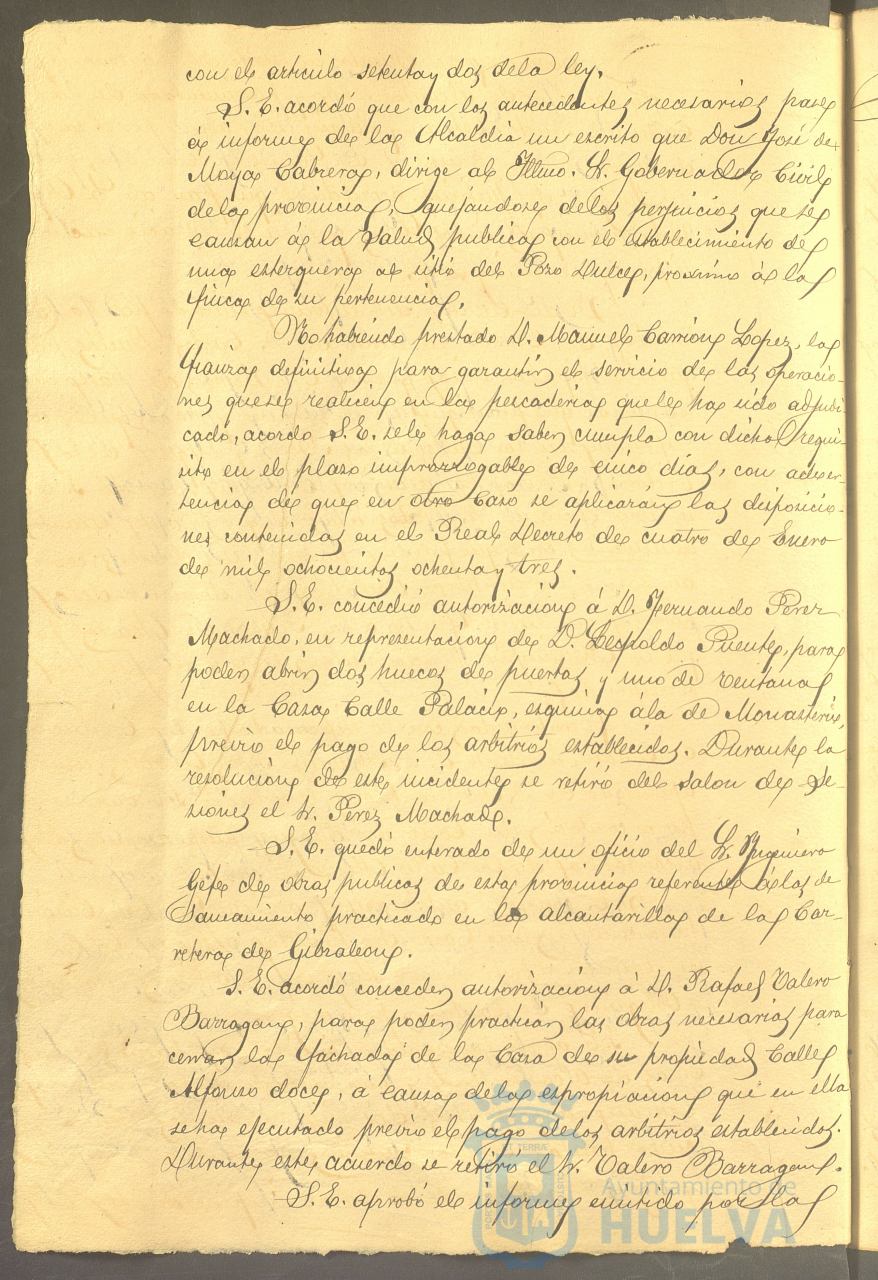 con el articulo setenta y dos de la ley.
S. E. acordó que con los antecedentes necesarios pase
á informe de la Alcaldia un escrito que Don José de
Moya Cabrera, dirige al Illmo. Sr. Gobernador Civil
de la provincia, quejandose de los perjuicios que se
causan á la salud publica con el establecimiento de
una esterquera al sitio del Pozo Dulce, proximo á la
finca de su pertenencia.
No habiendo prestado D. Manuel Carrion Lopez, la
fianza definitiva para garantir el servicio de las operacio-
nes que se realicen en la pescaderia que le ha sido adjudi-
cado, acordo S. E. se le haga saber cumpla con dicho requi-
sito en el plazo improrrogable de cinco dias, con adver-
tencia de que en otro caso se aplicarán las disposicio-
nes contenidas en el Real Decreto de cuatro de Enero
de mil ochocientos ochenta y tres.
S. E. concedió autorizacion á D. Fernando Perez
Machado, en representacion de D. Leopoldo Puente, para
poder abrir dos huecos de puertas y uno de ventana
en la Casa Calle Palacio, esquina á la de Monasterio,
previo el pago de los arbitrios establecidos. Durante la
resolucion de este incidente se retiró del salon de Se-
siones el Sr. Perez Machado.
S. E. quedó enterado de un oficio del Sr. Yngeniero
Gefe de obras publicas de esta provincia referente á las de
Saneamiento practicado en la alcantarilla de la Car-
retera de Gibraleon.
S. E. acordó conceder autorizacion á D. Rafael Valero
Barragan, para poder practicar las obras necesarias para
cerrar la fachada de la Casa de su propiedad Calle
Alfonso doce, á causa de la espropiacion que en ella
se ha ejecutado previo el pago de los arbitrios establecidos.
Durante este acuerdo se retiró el Sr. Valero Barragan.
S. E. aprobó el informe emitido por la
Ayuntamiento de
HUELVA